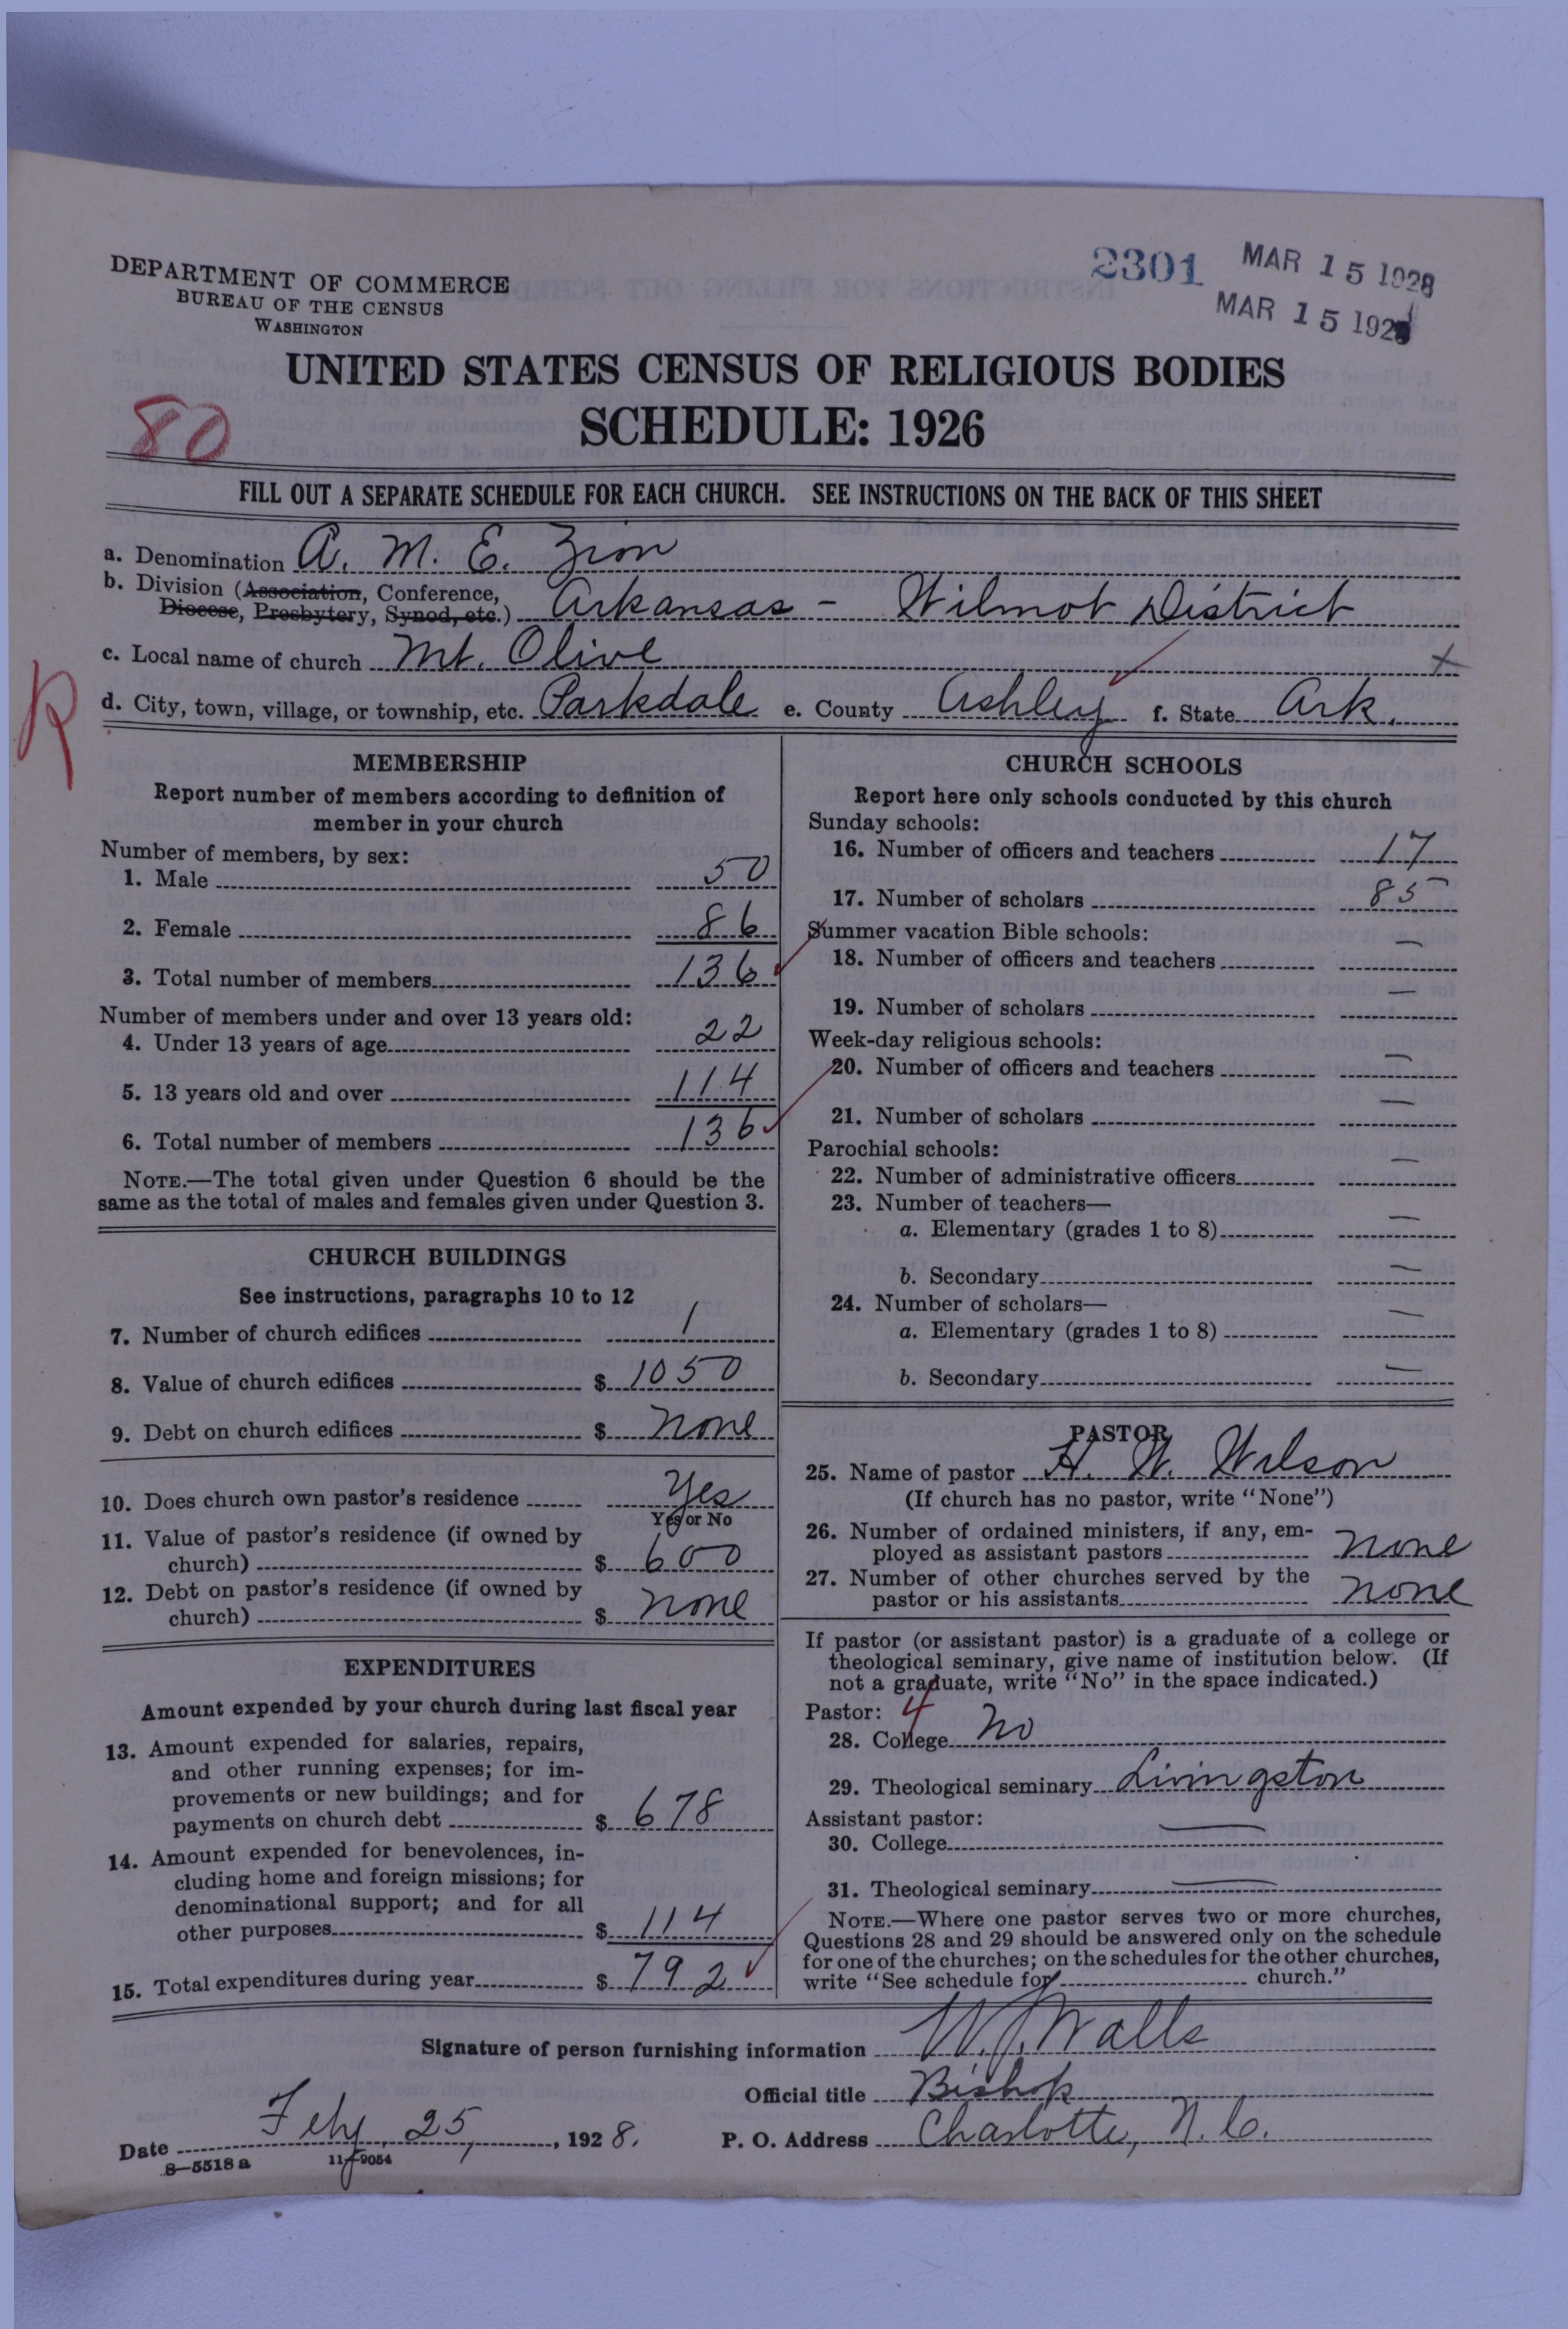 2301 MAR 15 1928
MAR 15 192
DEPARTMENT OF COMMERCE
BUREAU OF THE CENSUS
WASHINGTON
UNITED STATES CENSUS OF RELIGIOUS BODIES
SCHEDULE: 1926
80
FILL OUT A SEPARATE SCHEDULE FOR EACH CHURCH. SEE INSTRUCTIONS ON THE BACK OF THIS SHEET
a. Denomination A. M. E. Zion
b. Division (Association, Conference,
Diocese, Presbytery, Synod, etc.) Arkansas - Wilmot District
c. Local name of church Mt. Olive
R
d. City, town, village, or township, etc. Parkdale e. County Ashley f. State Ark.
MEMBERSHIP
Report number of members according to definition of
member in your church
Number of members, by sex:
1. Male 50
2. Female 86
3. Total number of members 136
Number of members under and over 13 years old:
4. Under 13 years of age 22
5. 13 years old and over 114
6. Total number of members 136
NOTE.—The total given under Question 6 should be the
same as the total of males and females given under Question 3.
CHURCH BUILDINGS
See instructions, paragraphs 10 to 12
7. Number of church edifices 1
8. Value of church edifices $ 1050
9. Debt on church edifices $ none
10. Does church own pastor's residence Yes
Yes or No
11. Value of pastor's residence (if owned by
church) $ 600
12. Debt on pastor's residence (if owned by
church) $ none
EXPENDITURES
Amount expended by your church during last fiscal year
13. Amount expended for salaries, repairs,
and other running expenses; for im-
provements or new buildings; and for
payments on church debt $ 678
14. Amount expended for benevolences, in-
cluding home and foreign missions; for
denominational support; and for all
other purposes $ 114
15. Total expenditures during year $ 792
CHURCH SCHOOLS
Report here only schools conducted by this church
Sunday schools:
16. Number of officers and teachers 17
17. Number of scholars 85
Summer vacation Bible schools:
18. Number of officers and teachers —
19. Number of scholars —
Week-day religious schools:
20. Number of officers and teachers —
21. Number of scholars —
Parochial schools:
22. Number of administrative officers —
23. Number of teachers—
a. Elementary (grades 1 to 8) —
b. Secondary —
24. Number of scholars—
a. Elementary (grades 1 to 8) —
b. Secondary —
PASTOR
25. Name of pastor H. W. Wilson
(If church has no pastor, write "None")
26. Number of ordained ministers, if any, em-
ployed as assistant pastors none
27. Number of other churches served by the
pastor or his assistants none
If pastor (or assistant pastor) is a graduate of a college or
theological seminary, give name of institution below. (If
not a graduate, write "No" in the space indicated.)
Pastor: 4
28. College No
29. Theological seminary Livingston
Assistant pastor:
30. College —
31. Theological seminary —
NOTE.—Where one pastor serves two or more churches,
Questions 28 and 29 should be answered only on the schedule
for one of the churches; on the schedules for the other churches,
write "See schedule for church."
Signature of person furnishing information W. J. Walls
Official title Bishop
Date Feby 25, 1928. P. O. Address Charlotte, N. C.
8—5518 a 11—9054